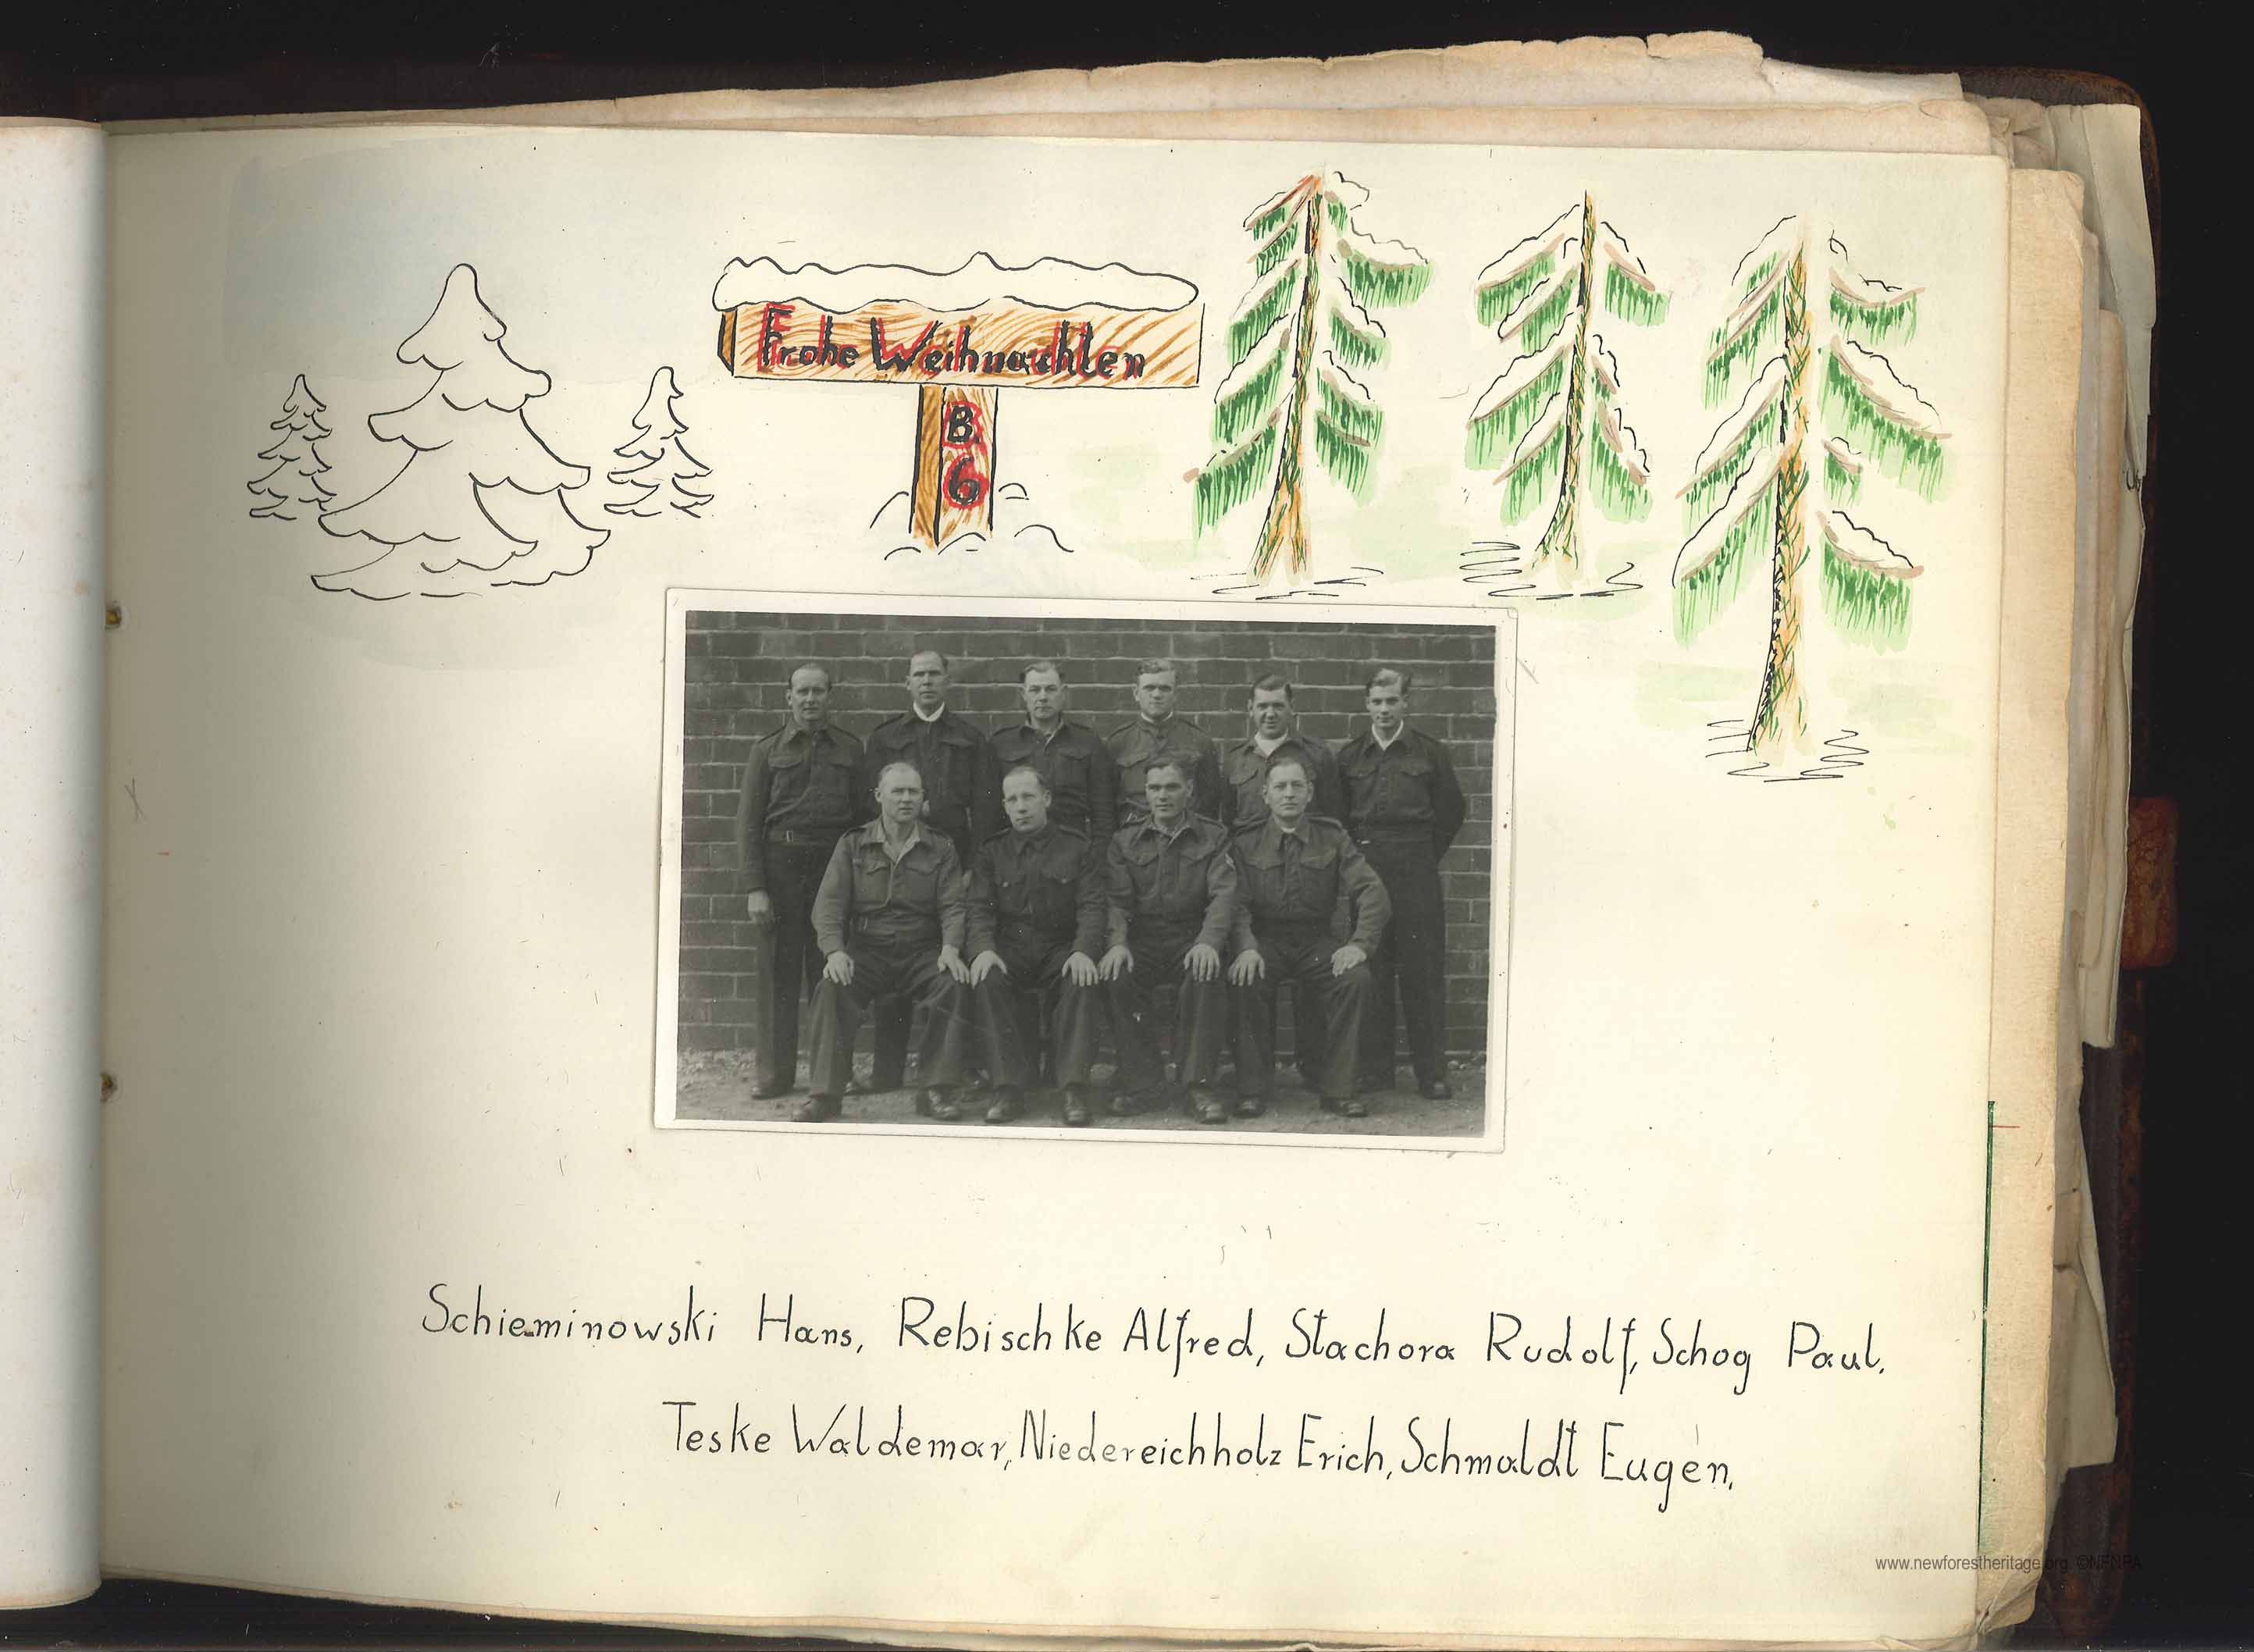 Frohe Weihnachten
B.
6
Schieminowski Hans, Rebischke Alfred, Stachora Rudolf, Schog Paul.
Teske Waldemar, Niedereichholz Erich, Schmaldt Eugen.
www.newforestheritage.org ©NFNPA